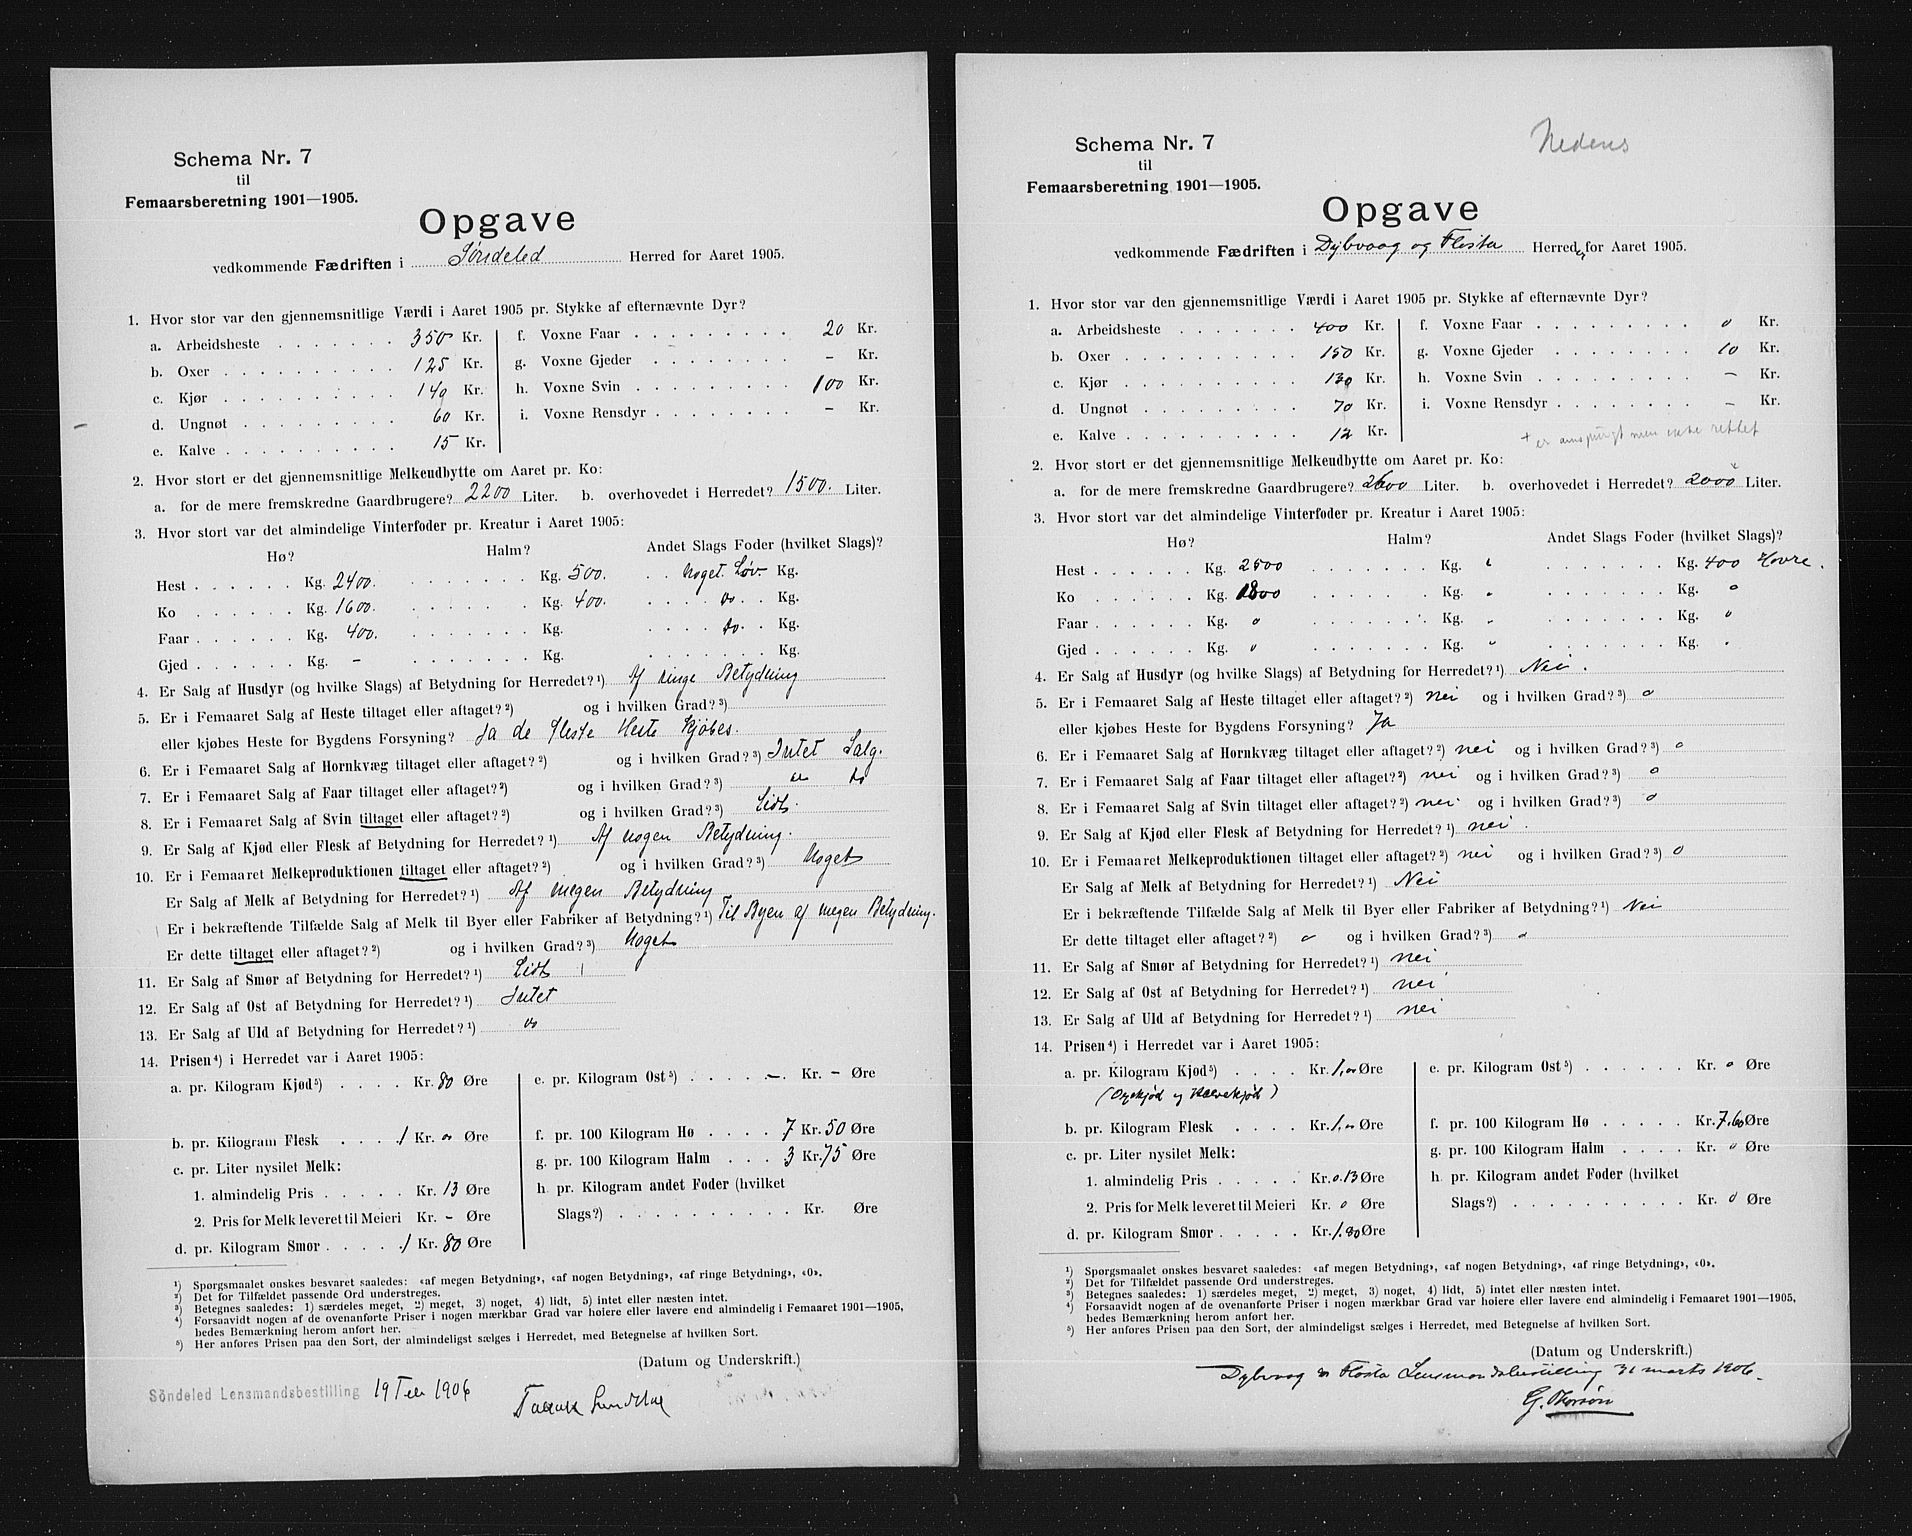 Schema Nr. 7
til
Femaarsberetning 1901—1905.
Opgave
vedkommende Fædriften i Søndeled Herred for Aaret 1905.
1. Hvor stor var den gjennemsnitlige Værdi i Aaret 1905 pr. Stykke af efternævnte Dyr?
a. Arbeidsheste . . . . . . . 350 Kr.
b. Oxer . . . . . . . . . . 125 Kr.
c. Kjør . . . . . . . . . . 140 Kr.
d. Ungnøt . . . . . . . . . 60 Kr.
e. Kalve . . . . . . . . . . 15 Kr.
f. Voxne Faar . . . . . . . . . 20 Kr.
g. Voxne Gjeder . . . . . . . . – Kr.
h. Voxne Svin . . . . . . . . . 100 Kr.
i. Voxne Rensdyr . . . . . . . – Kr.
2. Hvor stort er det gjennemsnitlige Melkeudbytte om Aaret pr. Ko:
a. for de mere fremskredne Gaardbrugere? 2200 Liter. b. overhovedet i Herredet? 1500. Liter.
3. Hvor stort var det almindelige Vinterfoder pr. Kreatur i Aaret 1905:
Hø? Halm? Andet Slags Foder (hvilket Slags)?
Hest . . . . . Kg. 2400. . . . . . . . Kg. 500. . . Noget Løv. Kg.
Ko . . . . . . Kg. 1600. . . . . . . . Kg. 400. . . . . do . . Kg.
Faar . . . . . Kg. 400. . . . . . . . Kg. . . . . do. . . Kg.
Gjed . . . . . . Kg. – . . . . . . . Kg. . . . . . . . . Kg.
4. Er Salg af Husdyr (og hvilke Slags) af Betydning for Herredet?¹) Af ringe Betydning
5. Er i Femaaret Salg af Heste tiltaget eller aftaget?²) og i hvilken Grad?³)
eller kjøbes Heste for Bygdens Forsyning? Ja de fleste Heste kjøbes.
6. Er i Femaaret Salg af Hornkvæg tiltaget eller aftaget?²) og i hvilken Grad?³) Intet Salg.
7. Er i Femaaret Salg af Faar tiltaget eller aftaget?²) og i hvilken Grad?³) do do
8. Er i Femaaret Salg af Svin tiltaget eller aftaget?²) og i hvilken Grad?³) Lidt.
9. Er Salg af Kjød eller Flesk af Betydning for Herredet?¹) Af nogen Betydning.
10. Er i Femaaret Melkeproduktionen tiltaget eller aftaget?²) og i hvilken Grad?³) Noget
Er Salg af Melk af Betydning for Herredet?¹) Af megen Betydning
Er i bekræftende Tilfælde Salg af Melk til Byer eller Fabriker af Betydning?¹) Til Byen af megen Betydning.
Er dette tiltaget eller aftaget?²) og i hvilken Grad?³) Noget
11. Er Salg af Smør af Betydning for Herredet?¹) Lidt
12. Er Salg af Ost af Betydning for Herredet?¹) Intet
13. Er Salg af Uld af Betydning for Herredet?¹) do
14. Prisen⁴) i Herredet var i Aaret 1905:
a. pr. Kilogram Kjød⁵) . . . . Kr. 80 Øre
b. pr. Kilogram Flesk . . . . 1 Kr. 00 Øre
c. pr. Liter nysilet Melk:
1. almindelig Pris . . . . . Kr. 13 Øre
2. Pris for Melk leveret til Meieri Kr. – Øre
d. pr. Kilogram Smør . . . . . 1 Kr. 80 Øre
e. pr. Kilogram Ost⁵) . . . . . – Kr. – Øre
f. pr. 100 Kilogram Hø . . . . 7 Kr. 50 Øre
g. pr. 100 Kilogram Halm . . . 3 Kr. 75 Øre
h. pr. Kilogram andet Foder (hvilket
Slags?) . . . . . . . . . . Kr. Øre
¹) Spørgsmaalet ønskes besvaret saaledes: «af megen Betydning», «af nogen Betydning», «af ringe Betydning», «0».
²) Det for Tilfældet passende Ord understreges.
³) Betegnes saaledes: 1) særdeles meget, 2) meget, 3) noget, 4) lidt, 5) intet eller næsten intet.
⁴) Forsaavidt nogen af de ovenanførte Priser i nogen mærkbar Grad var høiere eller lavere end almindelig i Femaaret 1901—1905,
bedes Bemærkning herom anført her.
⁵) Her anføres Prisen paa den Sort, der almindeligst sælges i Herredet, med Betegnelse af hvilken Sort.
(Datum og Underskrift.)
Söndeled Lensmandsbestilling 19 Feb 1906
Nedens
Schema Nr. 7
til
Femaarsberetning 1901—1905.
Opgave
vedkommende Fædriften i Dybvaag og Flosta Herreder for Aaret 1905.
1. Hvor stor var den gjennemsnitlige Værdi i Aaret 1905 pr. Stykke af efternævnte Dyr?
a. Arbeidsheste . . . . . . . 400 Kr.
b. Oxer . . . . . . . . . . 150 Kr.
c. Kjør . . . . . . . . . . 130 Kr.
d. Ungnøt . . . . . . . . . 70 Kr.
e. Kalve . . . . . . . . . . 12 Kr.
f. Voxne Faar . . . . . . . . . 0 Kr.
g. Voxne Gjeder . . . . . . . . 10 Kr.
h. Voxne Svin . . . . . . . . . – Kr.
i. Voxne Rensdyr . . . . . . . – Kr.
+ er anspurgt men ikke rettet
2. Hvor stort er det gjennemsnitlige Melkeudbytte om Aaret pr. Ko:
a. for de mere fremskredne Gaardbrugere? 2600 Liter. b. overhovedet i Herredet? 2000 Liter.
3. Hvor stort var det almindelige Vinterfoder pr. Kreatur i Aaret 1905:
Hø? Halm? Andet Slags Foder (hvilket Slags)?
Hest . . . . . . Kg. 2500 . . . . . . . Kg. " . . . . . . . Kg. 400 Havre.
Ko . . . . . . . Kg. 1800 . . . . . . . Kg. " . . . . . . . Kg. 0
Faar . . . . . . Kg. 0 . . . . . . . Kg. " . . . . . . . Kg. 0
Gjed . . . . . . Kg. 0 . . . . . . . Kg. " . . . . . . . Kg. "
4. Er Salg af Husdyr (og hvilke Slags) af Betydning for Herredet?¹) Nei.
5. Er i Femaaret Salg af Heste tiltaget eller aftaget?²) nei og i hvilken Grad?³) 0
eller kjøbes Heste for Bygdens Forsyning? Ja
6. Er i Femaaret Salg af Hornkvæg tiltaget eller aftaget?²) nei og i hvilken Grad?³) 0
7. Er i Femaaret Salg af Faar tiltaget eller aftaget?²) nei og i hvilken Grad?³) 0
8. Er i Femaaret Salg af Svin tiltaget eller aftaget?²) nei og i hvilken Grad?³) 0
9. Er Salg af Kjød eller Flesk af Betydning for Herredet?¹) nei.
10. Er i Femaaret Melkeproduktionen tiltaget eller aftaget?²) nei og i hvilken Grad?³) 0
Er Salg af Melk af Betydning for Herredet?¹) Nei
Er i bekræftende Tilfælde Salg af Melk til Byer eller Fabriker af Betydning?¹) Nei
Er dette tiltaget eller aftaget?²) 0 og i hvilken Grad?³) 0
11. Er Salg af Smør af Betydning for Herredet?¹) nei
12. Er Salg af Ost af Betydning for Herredet?¹) nei
13. Er Salg af Uld af Betydning for Herredet?¹) nei
14. Prisen⁴) i Herredet var i Aaret 1905:
a. pr. Kilogram Kjød⁵) . . . . Kr. 1,00 Øre
(Oxekjød og Kalvekjød)
b. pr. Kilogram Flesk . . . . Kr. 1,00 Øre
c. pr. Liter nysilet Melk:
1. almindelig Pris . . . . . Kr. 0.13 Øre
2. Pris for Melk leveret til Meieri Kr. 0 Øre
d. pr. Kilogram Smør . . . . . Kr. 1.80 Øre
e. pr. Kilogram Ost⁵) . . . . . . Kr. 0 Øre
f. pr. 100 Kilogram Hø . . . . . Kr. 7.60 Øre
g. pr. 100 Kilogram Halm . . . . Kr. 0 Øre
h. pr. Kilogram andet Foder (hvilket
Slags?) . . . . . . . . . . Kr. 0 Øre
¹) Spørgsmaalet ønskes besvaret saaledes: «af megen Betydning», «af nogen Betydning», «af ringe Betydning», «0».
²) Det for Tilfældet passende Ord understreges.
³) Betegnes saaledes: 1) særdeles meget, 2) meget, 3) noget, 4) lidt, 5) intet eller næsten intet.
⁴) Forsaavidt nogen af de ovenanførte Priser i nogen mærkbar Grad var høiere eller lavere end almindelig i Femaaret 1901—1905,
bedes Bemærkning herom anført her.
⁵) Her anføres Prisen paa den Sort, der almindeligst sælges i Herredet, med Betegnelse af hvilken Sort.
(Datum og Underskrift.)
Dybvaag og Flosta Lensmandsbestilling 31 marts 1906.
G.